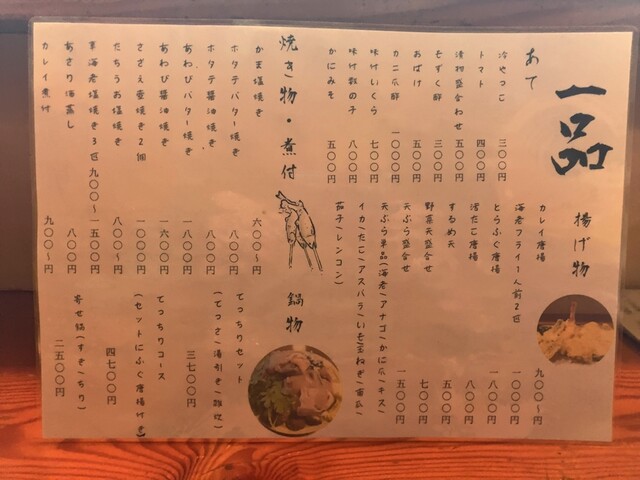 一品
あて
冷やっこ 三〇〇円
トマト 四〇〇円
漬物盛合わせ 五〇〇円
もずく酢 三〇〇円
おばけ 五〇〇円
カニ爪酢 一〇〇〇円
味付いくら 七〇〇円
味付数の子 八〇〇円
かにみそ 五〇〇円
揚げ物
カレイ唐揚 九〇〇〜円
海老フライ1人前2匹 一〇〇〇円
とらふぐ唐揚 一八〇〇円
活だこ唐揚 八〇〇円
するめ天 五〇〇円
野菜天盛合せ 七〇〇円
天ぷら盛合せ 一五〇〇円
天ぷら単品(海老/アナゴ/かに爪/キス/
イカ/たこ/アスパラ/いも/玉ねぎ/南瓜/
茄子/レンコン)
焼き物・煮付
かま塩焼き 六〇〇〜円
ホタテバター焼き 八〇〇円
ホタテ醤油焼き 八〇〇円
あわびバター焼き 一八〇〇円
あわび醤油焼き 一六〇〇円
さざえ壺焼き2個 一〇〇〇円
たちうお塩焼き 八〇〇〜円
車海老塩焼き3匹 九〇〇〜一五〇〇円
あさり酒蒸し 八〇〇円
カレイ煮付 九〇〇〜円
鍋物
てっちりセット
(てっさ/湯引き/雑炊)
三七〇〇円
てっちりコース
(セットにふぐ唐揚付き)
四七〇〇円
寄せ鍋(すき/ちり)
二五〇〇円